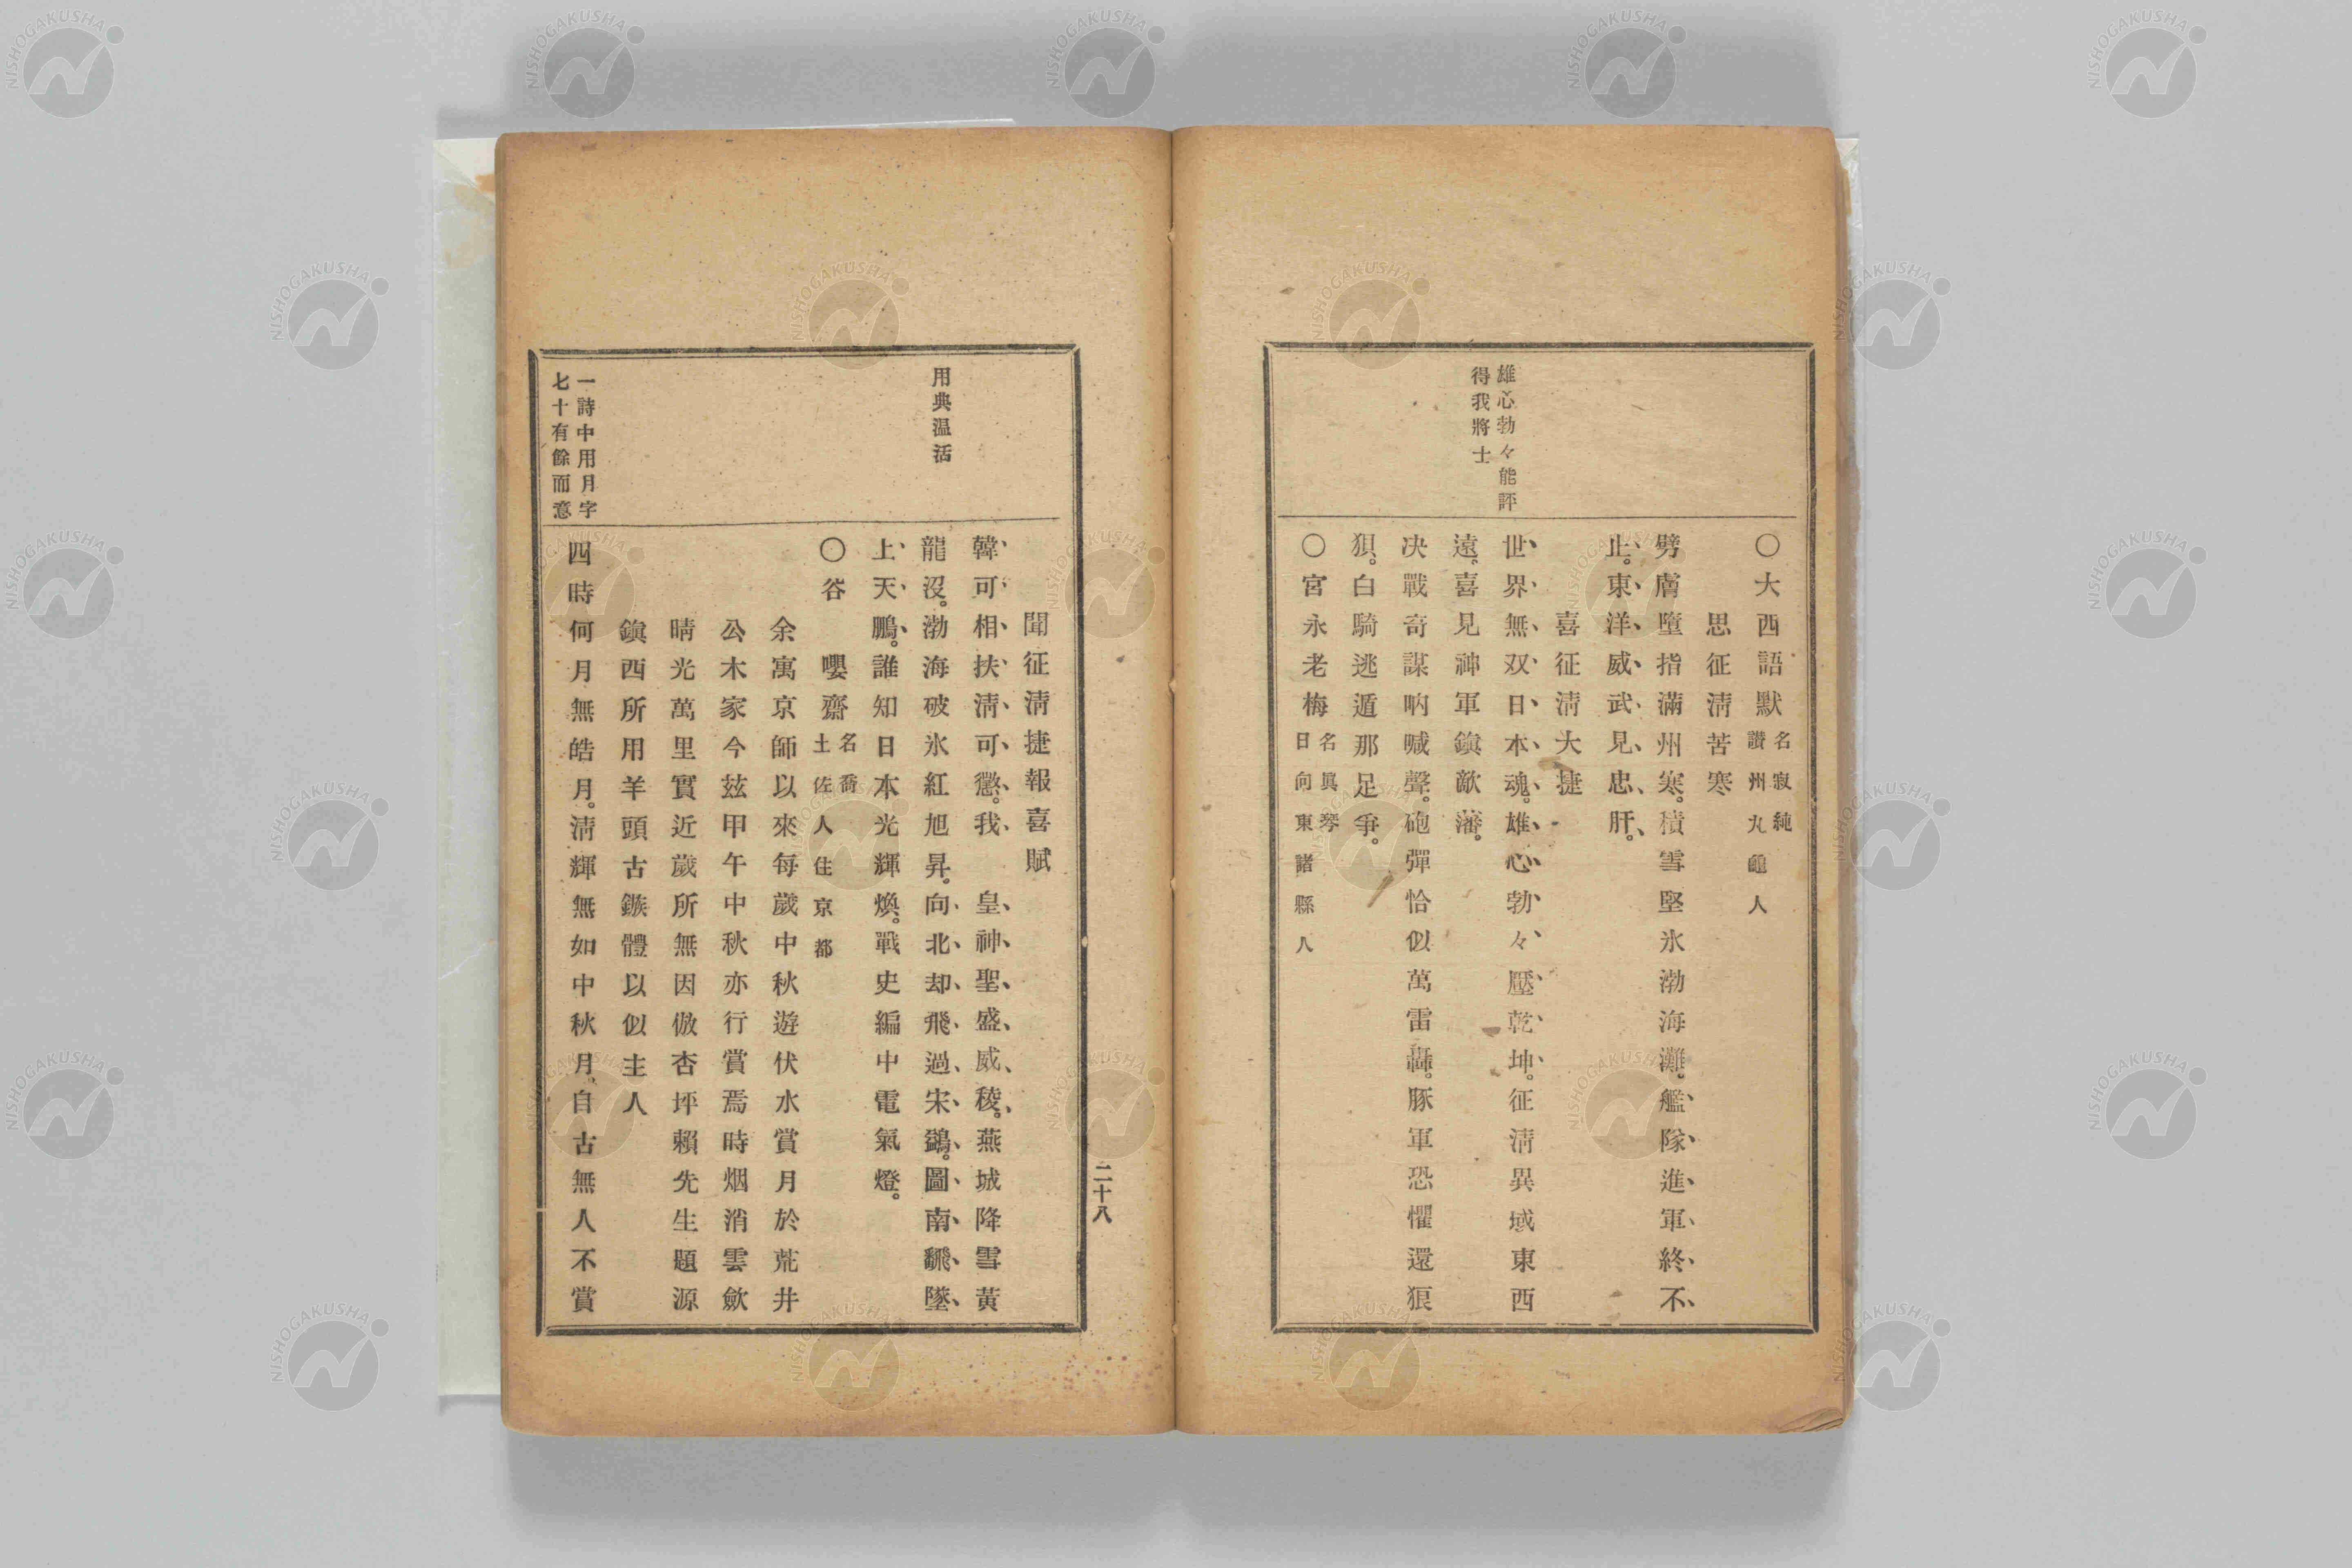 雄心勃々能評
得我將士
〇大西語默 名寂純
讃州丸龜人
思征淸苦寒
劈膚墮指滿州寒。積雪堅氷渤海灘。艦隊進軍終不
止。東洋威武見忠肝。
喜征淸大捷
世界無双日本魂。雄心勃々壓乾坤。征淸異域東西
遠。喜見神軍鎭敵藩。
决戰奇謀吶喊聲。砲彈恰似萬雷轟。豚軍恐懼還狼
狽。白騎逃遁那足爭。
〇宮永老梅 名眞琴
日向東諸縣人
二十八
用典温活
一詩中用月字
七十有餘而意
聞征淸捷報喜賦
韓可相扶淸可懲。我 皇神聖盛威稜。燕城降雪黃
龍沒。渤海破氷紅旭昇。向北却飛過宋鷁。圖南飜墜
上天鵬。誰知日本光輝煥。戰史編中電氣燈。
〇谷 嚶齋 名喬
土佐人住京都
余寓京師以來每歲中秋遊伏水賞月於荒井
公木家今玆甲午中秋亦行賞焉時烟消雲歛
晴光萬里實近歲所無因倣杏坪賴先生題源
鎭西所用羊頭古鏃體以似主人
四時何月無皓月。淸輝無如中秋月。自古無人不賞
NISHOGAKUSHA